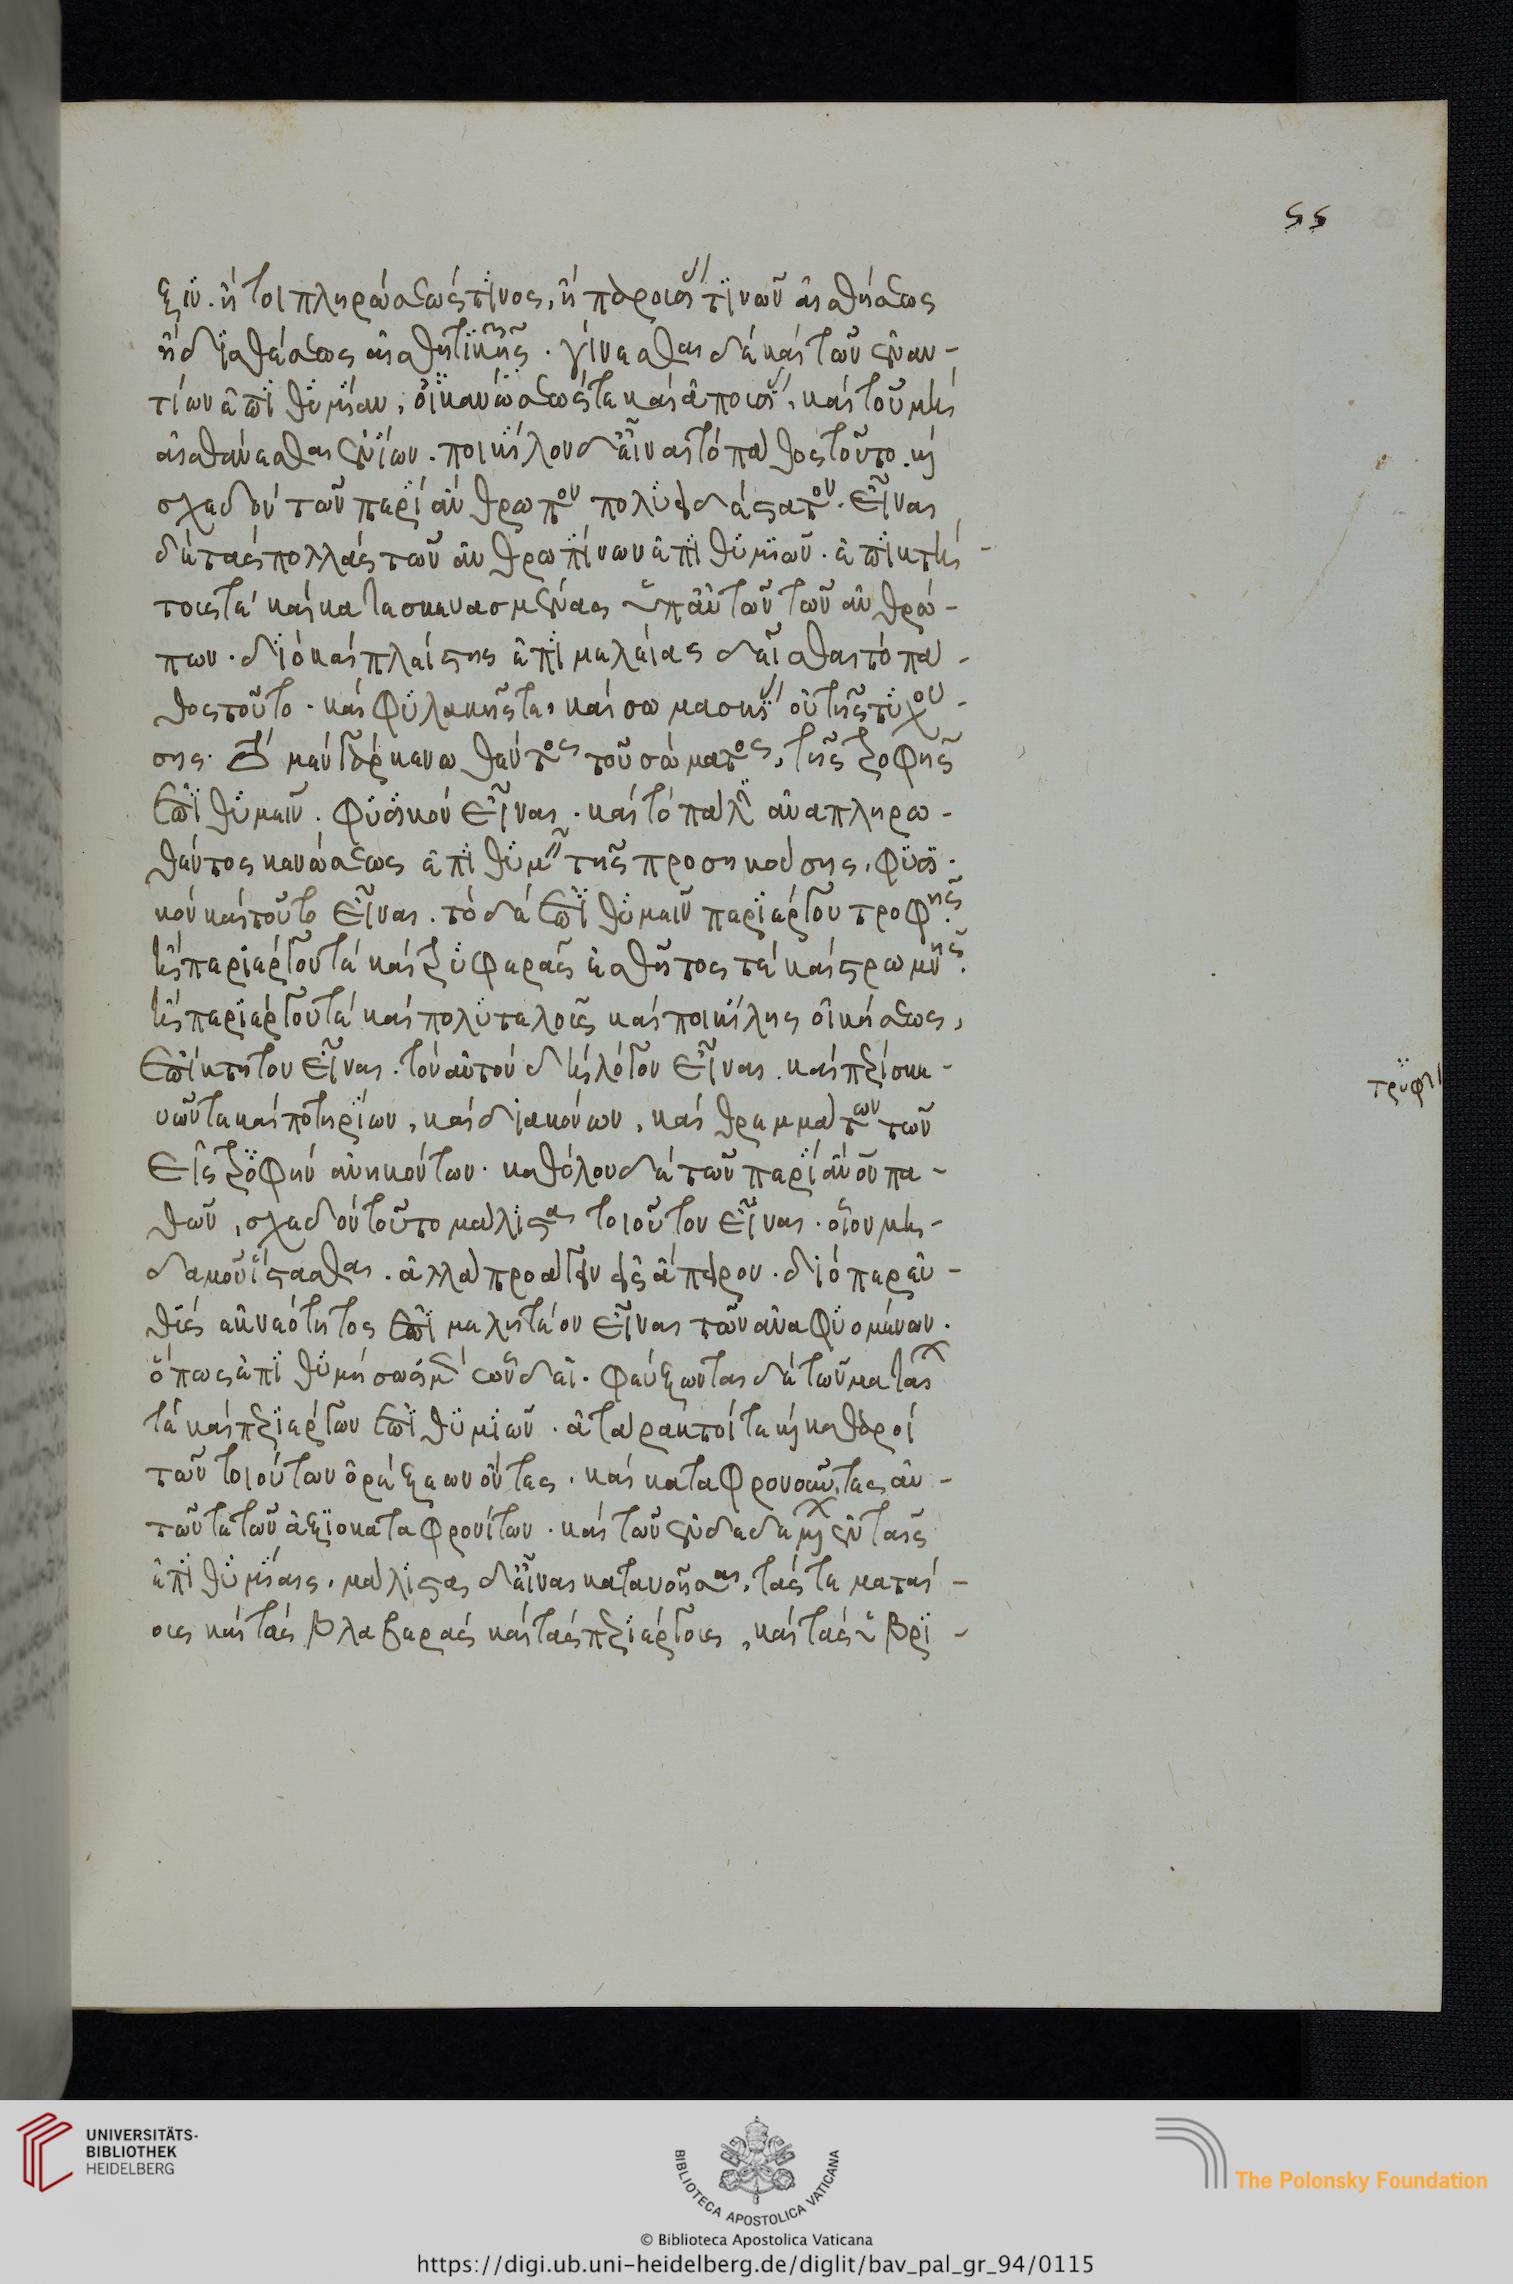 55
ξιν. ἤτοι πληρώσεώς τινος, ἢ παρουσίαν τινῶν αἰσθήσεως
ἢ διαθέσεως αἰσθητικῆς. γίνεσθαι δὲ καὶ τῶν ἐναν-
τίων ἐπιθυμίαν, οἷ κενώσεώς τε καὶ ἀπουσίαν, καὶ τοῦ μὴ
αἰσθάνεσθαι ἐνίων. ποικίλον δ' εἶναι τὸ πάθος τοῦτο. καὶ
σχεδὸν τῶν περὶ ἄνθρωπον πολυειδέστατον. εἶναι
δὲ τὰς πολλὰς τῶν ἀνθρωπίνων ἐπιθυμιῶν. ἐπικτή-
τους τε καὶ κατεσκευασμένας ὑπ' αὐτῶν τῶν ἀνθρώ-
πων. διὸ καὶ πλείστης ἐπιμελείας δεῖσθαι τὸ πά-
θος τοῦτο. καὶ φυλακῆς τε, καὶ σωμασκίαν οὐ τῆς τυχού-
σης. τὸ μὲν γὰρ κενωθέντος τοῦ σώματος, τῆς τροφῆς
ἐπιθυμεῖν. φυσικὸν εἶναι. καὶ τὸ πάλιν ἀναπληρω-
θέντος κενώσεως ἐπιθυμεῖν τῆς προσηκούσης, φυσι-
κὸν καὶ τοῦτο εἶναι. τὸ δὲ ἐπιθυμεῖν περιέργου τροφῆς.
ἢ περιέργου τε καὶ τρυφερᾶς ἐσθῆτος τε καὶ στρωμνῆς.
ἢ περιέργου τε καὶ πολυτελοῦς καὶ ποικίλης οἰκήσεως,
ἐπίκτητον εἶναι. τὸν αὐτὸν δὴ λόγον εἶναι. καὶ περὶ σκε-
υῶν τε καὶ ποτηρίων, καὶ διακόνων, καὶ θρεμμάτων τῶν
εἰς τροφὴν ἀνηκόντων. καθόλου δὲ τῶν περὶ ἀνον πα-
θῶν, σχεδὸν τοῦτο μάλιστα τοιοῦτον εἶναι. οἷον μη-
δαμοῦ ἵστασθαι. ἀλλὰ προάγειν εἰς ἄπειρον. διόπερ εὐ-
θὺς ἐκ νεότητος ἐπιμελητέον εἶναι τῶν ἀναφυομένων.
ὅπως ἐπιθυμήσωσι μὲν ὧν δεῖ. φεύξωνται δὲ τῶν ματαί
τε καὶ περιέργων ἐπιθυμιῶν. ἀτάρακτοί τε καὶ καθαροί
τῶν τοιούτων ὀρέξεων ὄντες. καὶ καταφρονοῦντες αὐ-
τῶν τε τῶν ἀξιοκαταφρονήτων. καὶ τῶν ἐνδεδεμένων ἐν ταῖς
ἐπιθυμίαις. μάλιστα δ' εἶναι κατανοῆσαι, τάς τε ματαί-
ους καὶ τὰς βλαβερὰς καὶ τὰς περιέργους, καὶ τὰς ὑβρι-
τρυφὴ
UNIVERSITÄTS-
BIBLIOTHEK
HEIDELBERG
BIBLIOTECA APOSTOLICA VATICANA
The Polonsky Foundation
© Biblioteca Apostolica Vaticana
https://digi.ub.uni-heidelberg.de/diglit/bav_pal_gr_94/0115